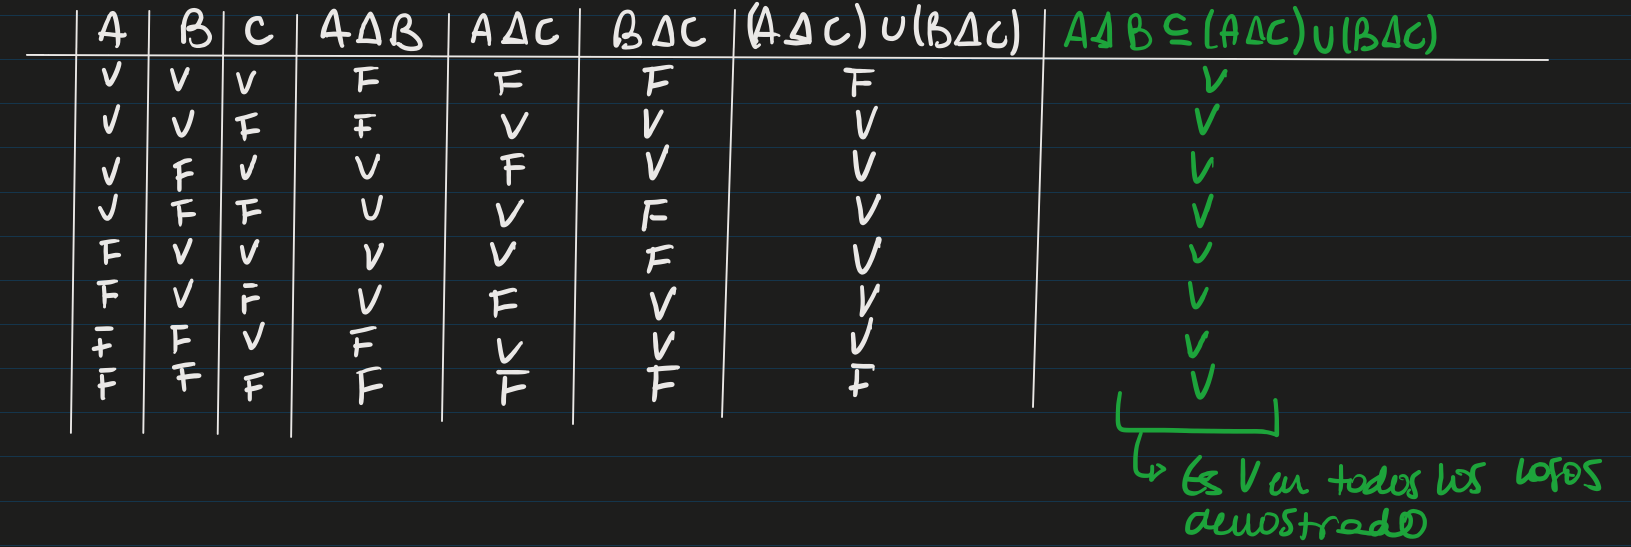 A B C AΔB AΔC BΔC (AΔC)∪(BΔC) AΔB⊆(AΔC)∪(BΔC)
V V V F F F F V
V V F F V V V V
V F V V F V V V
V F F V V F V V
F V V V V F V V
F V F V F V V V
F F V F V V V V
F F F F F F F V
Es V en todos los
demostrado